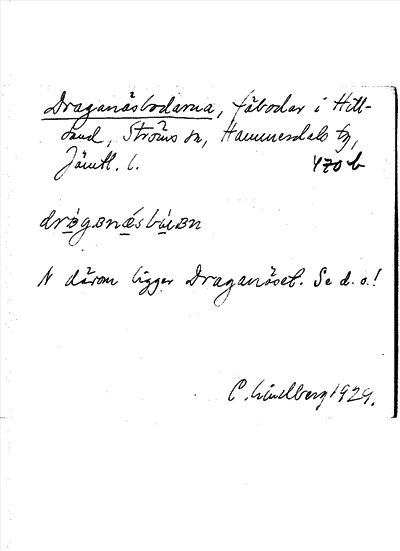 Draganäsbodarna, fäbodar i Hill-
sand, Ströms sn, Hammerdals tg,
Jämtl. l. 470 b
N därom ligger Draganäset. Se d. o.!
C. Lindberg 1929.